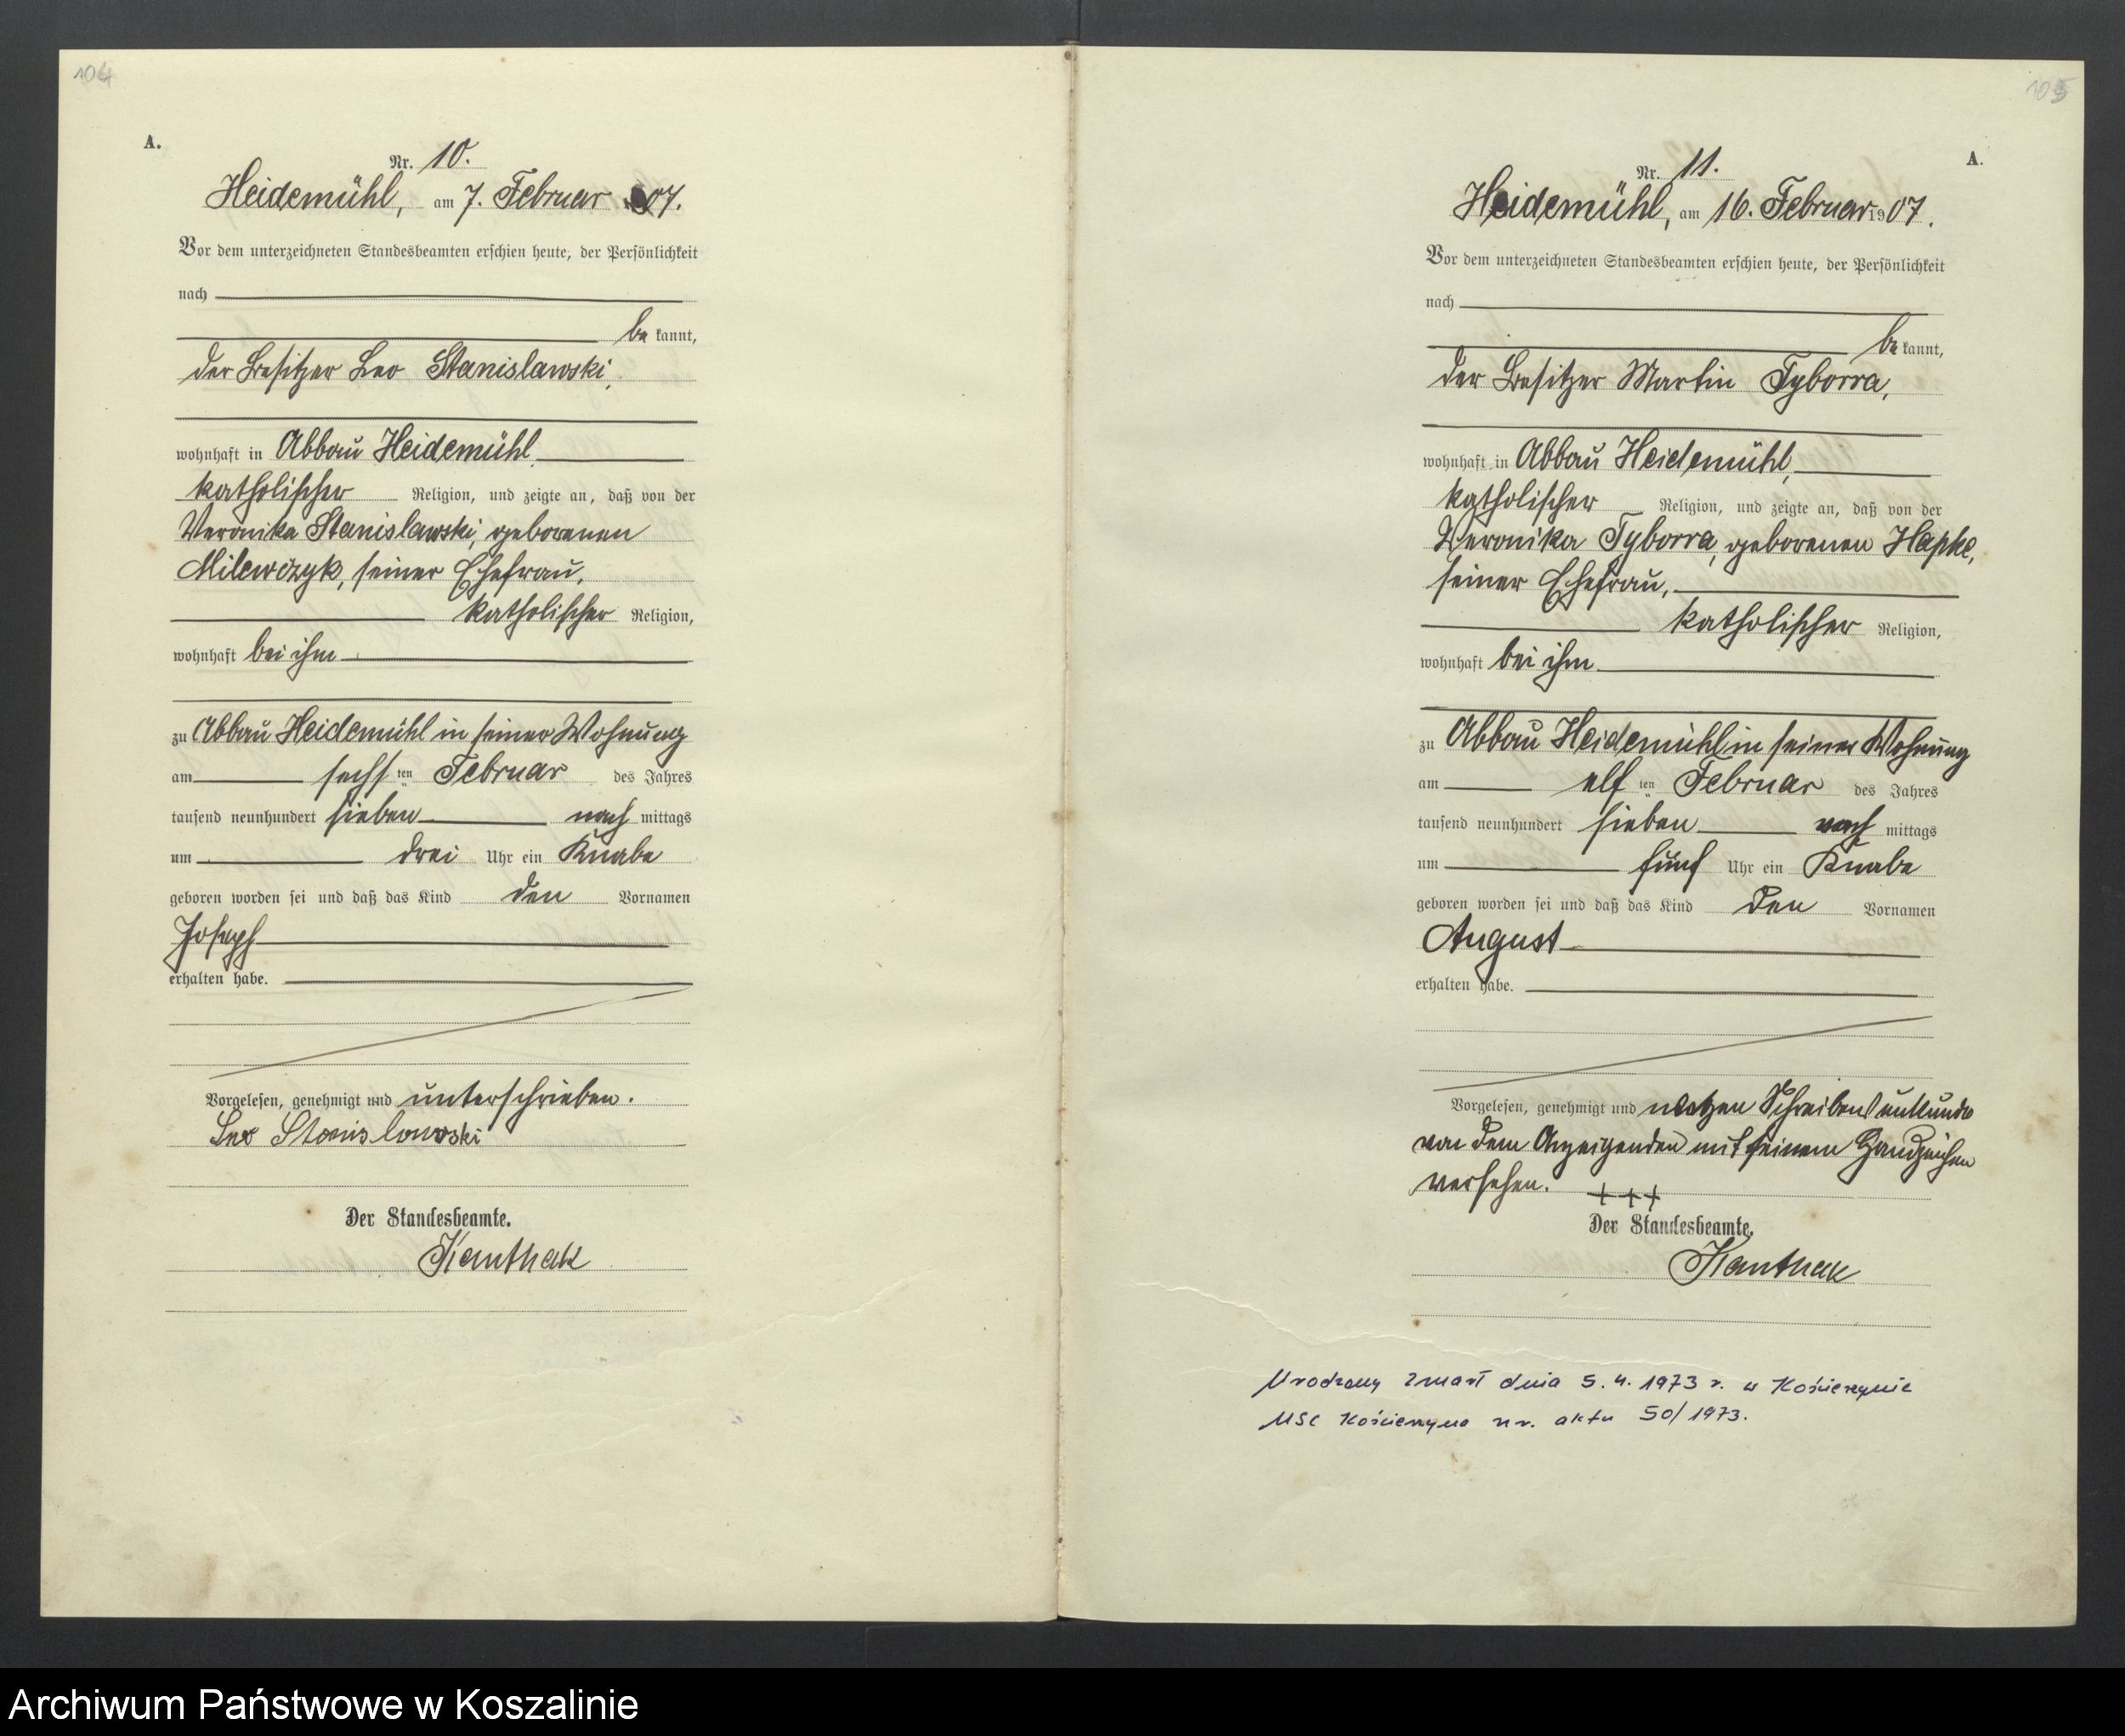 104
A.
Nr. 10.
Heidemühl, am 7. Februar 1907.
Vor dem unterzeichneten Standesbeamten erschien heute, der Persönlichkeit
nach
be kannt,
der Besitzer Leo Stanislawski,
wohnhaft in Abbau Heidemühl,
katholischer Religion, und zeigte an, daß von der
Veronika Stanislawski, geborenen
Milewczyk, seiner Ehefrau,
katholischer Religion,
wohnhaft bei ihm
zu Abbau Heidemühl in seiner Wohnung
am sechs ten Februar des Jahres
tausend neunhundert sieben nach mittags
um drei Uhr ein Knabe
geboren worden sei und daß das Kind den Vornamen
Joseph
erhalten habe.
Vorgelesen, genehmigt und unterschrieben.
Leo Stanislowski
Der Standesbeamte.
Kanthak
105
A.
Nr. 11.
Heidemühl, am 16. Februar 1907.
Vor dem unterzeichneten Standesbeamten erschien heute, der Persönlichkeit
nach
be kannt,
der Besitzer Martin Tyborra,
wohnhaft in Abbau Heidemühl,
katholischer Religion, und zeigte an, daß von der
Veronika Tyborra, geborenen Hapke,
seiner Ehefrau,
katholischer Religion,
wohnhaft bei ihm
zu Abbau Heidemühl in seiner Wohnung
am elf ten Februar des Jahres
tausend neunhundert sieben nach mittags
um fünf Uhr ein Knabe
geboren worden sei und daß das Kind den Vornamen
August
erhalten habe.
Vorgelesen, genehmigt und wegen Schreibensunkunde
von dem Anzeigenden mit seinem Handzeichen
versehen. +++
Der Standesbeamte.
Kanthak
Urodzony zmarł dnia 5.4.1973 r. w Kościerzynie
USC Kościerzyna nr. aktu 50/1973.
Archiwum Państwowe w Koszalinie